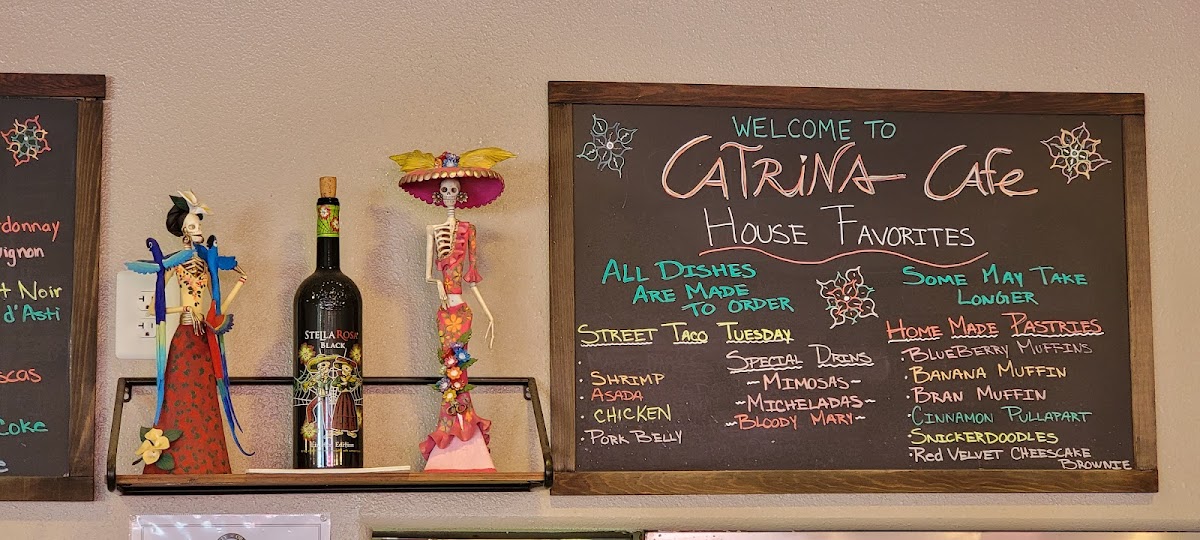 WELCOME TO
CATRINA CAFE
HOUSE FAVORITES
ALL DISHES
ARE MADE
TO ORDER
SOME MAY TAKE
LONGER
STREET TACO TUESDAY
· SHRIMP
· ASADA
· CHICKEN
· PORK BELLY
SPECIAL DRINS
~MIMOSAS~
~MICHELADAS~
~BLOODY MARY~
HOME MADE PASTRIES
·BLUEBERRY MUFFINS
·BANANA MUFFIN
·BRAN MUFFIN
·CINNAMON PULLAPART
·SNICKERDOODLES
·Red VELVET CHEESCAKE
BROWNIE
STELLA ROSA
BLACK
Edition
rdonnay
ignon
t Noir
d'Asti
scas
Coke